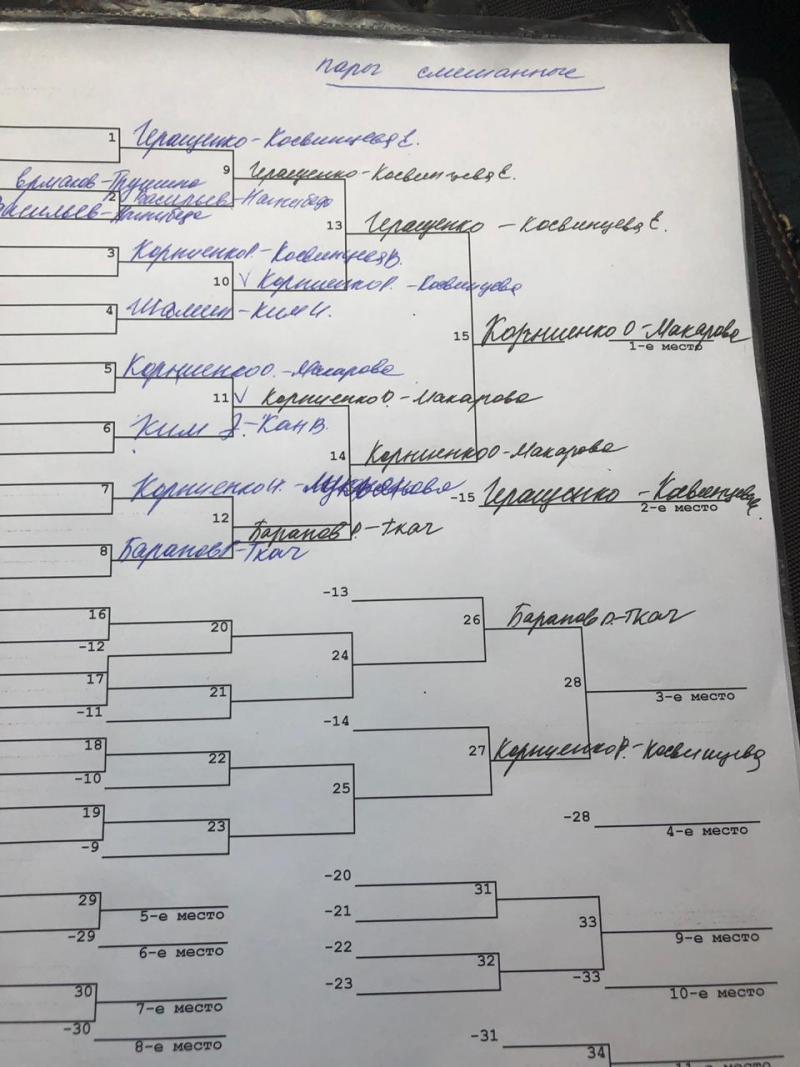 пары смешанные
1 Геращенко-Косвинцева Е.
9 Геращенко-Косвинцева Е.
Ермаков-Трушина
2 Васильев-
Васильев-
13 Геращенко-Косвинцева Е.
3 Корниенко Р.-Косвинцева В.
10 V Корниенко Р.-Косвинцева
4 Шамин-Ким И.
15 Корниенко О-Макарова
1-е место
5 Корниенко О.-Макарова
11 V Корниенко О.-Макарова
6 Ким Э.-Кан В.
14 Корниенко О-Макарова
7 Корниенко И.-
-15 Геращенко-Косвинцева Е.
2-е место
12 Баранов Р-Ткач
8 Баранов Р-Ткач
-13
16
26 Баранов Р-Ткач
20
-12
24
17
28
21
3-е место
-11
-14
18
27 Корниенко Р.-Косвинцева
22
-10
25
19
-28
23
4-е место
-9
-20
31
29
5-е место
-21
33
9-е место
-29
6-е место
-22
32
30
7-е место
-23
-33
10-е место
-30
8-е место
-31
34
11-е место